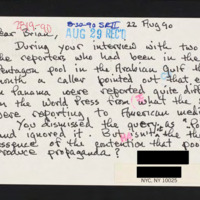 8-29-90
8-20-90 SRII 22 Aug 90
AUG 29 REC'D
ear Brian,
During your interview with two
the reporters who had been in the
entagon pool in the Arabian Gulf th
month a caller pointed out that e
n Panama were reported quite diff
the World Press from what the
were reporting to American medi
You discussed the query as "
nd ignored it. But isn't the th
ssence of the contention that poo
roduce propaganda?
NYC, NY 10025